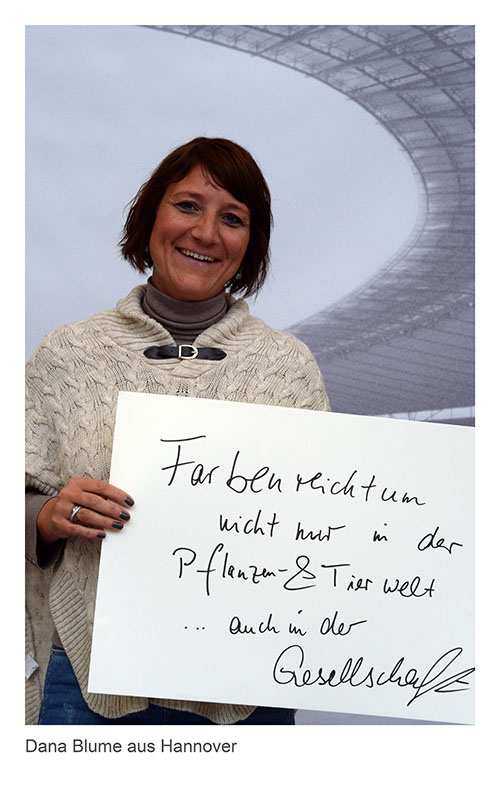 Farbenreichtum
nicht nur in der
Pflanzen- & Tierwelt
... auch in der
Gesellschaft
Dana Blume aus Hannover